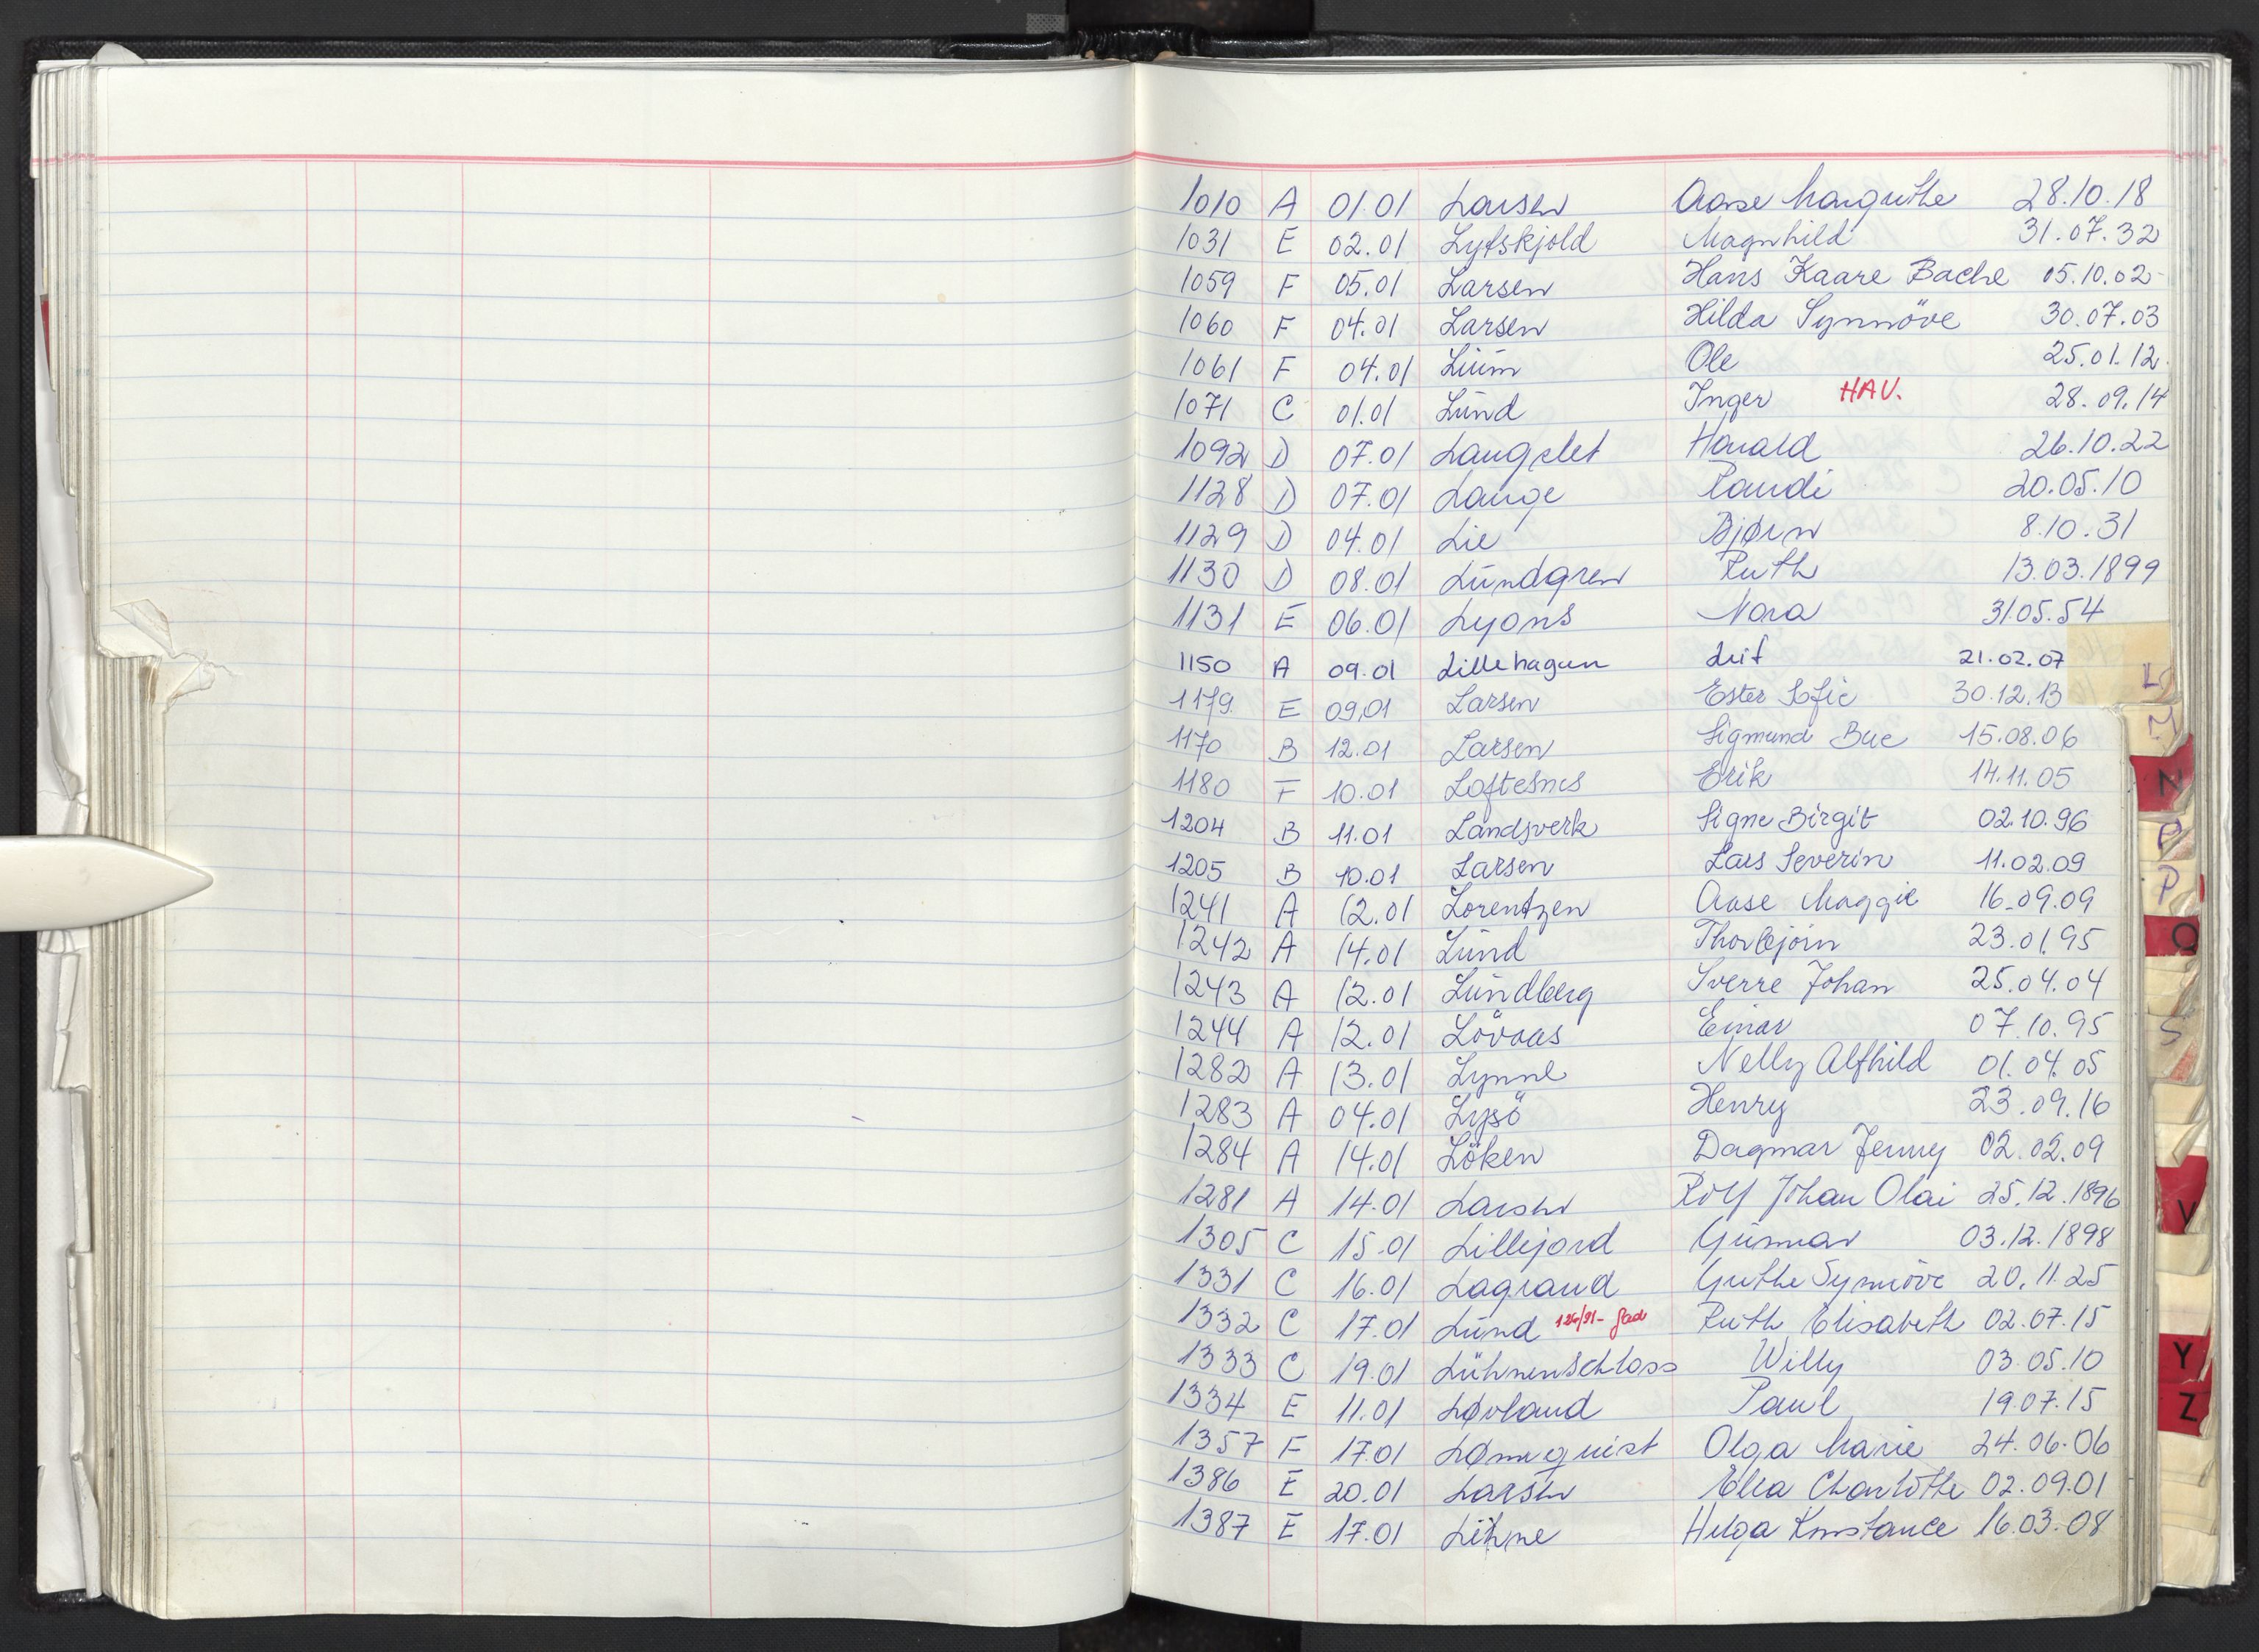 1010 A 01.01 Larsen Aase Margrethe 28.10.18
1031 E 02.01 Lytskjold Magnhild 31.07.32
1059 F 05.01 Larsen Hans Kaare Bache 05.10.02
1060 F 04.01 Larsen Hilda Synnöve 30.07.03
1061 F 04.01 Lium Ole 25.01.12
1071 C 01.01 Lund Inger HAV. 28.09.14
1092 D 07.01 Langslet Harald 26.10.22
1128 D 07.01 Lange Randi 20.05.10
1129 D 04.01 Lie Bjørn 8.10.31
1130 D 08.01 Lundgren Ruth 13.03.1899
1131 E 06.01 Lyons Nora 31.05.54
1150 A 09.01 Lillehagen Leif 21.02.07
1179 E 09.01 Larsen Ester Sofie 30.12.13
1170 B 12.01 Larsen Sigmund Bue 15.08.06
1180 F 10.01 Loftesnes Erik 14.11.05
1204 B 11.01 Landsverk Signe Birgit 02.10.96
1205 B 10.01 Larsen Lars Severin 11.02.09
1241 A 12.01 Lorentzen Aase Maggie 16.09.09
1242 A 14.01 Lund Thorbjörn 23.01.95
1243 A 12.01 Lundberg Sverre Johan 25.04.04
1244 A 12.01 Lövaas Einar 07.10.95
1282 A 13.01 Lynne Nelly Alfhild 01.04.05
1283 A 04.01 Lysö Henry 23.09.16
1284 A 14.01 Löken Dagmar Jenny 02.02.09
1281 A 14.01 Larsen Rolf Johan Olai 25.12.1896
1305 C 15.01 Lillejord Gunnar 03.12.1898
1331 C 16.01 Lagrand Grethe Synnöve 20.11.25
1332 C 17.01 Lund Ruth Elisabeth 02.07.15
1333 C 19.01 Lühnenschloss Willy 03.05.10
1334 E 11.01 Løvland Paul 19.07.15
1357 F 17.01 Lønnquist Olga Marie 24.06.06
1386 E 20.01 Larsen Elea Charlotte 02.09.01
1387 E 17.01 Lihne Helga Konstance 16.03.08
L
M
N
P
O
S
V
Y
Z